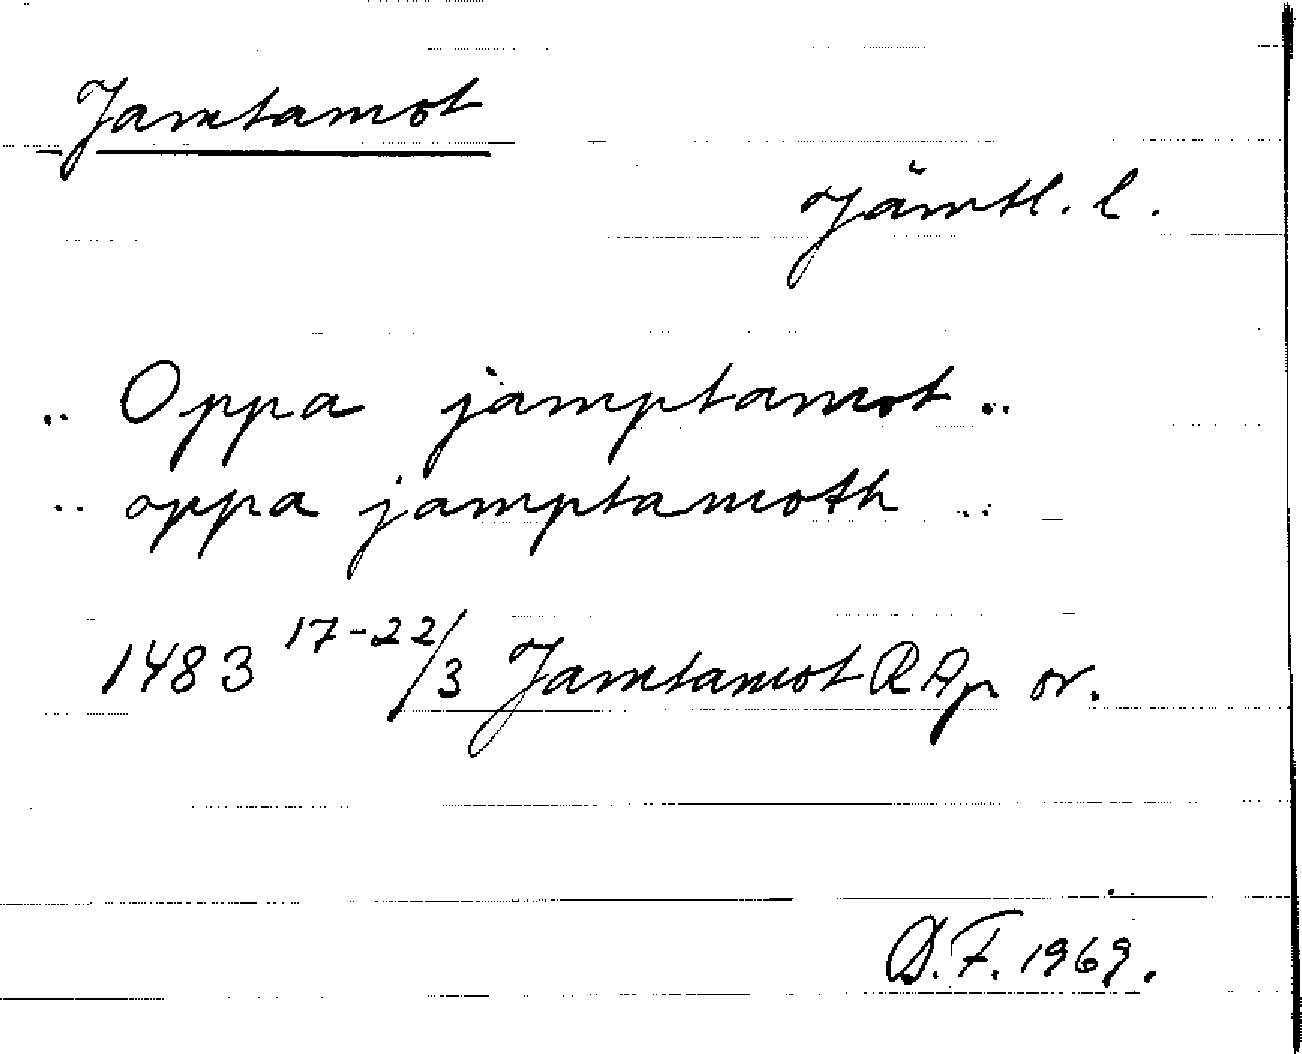 Jamtamot
Jämtl. l.
.. Oppa jamptamot ..
.. oppa jamptamoth ..
1483 17-22/3 Jamtamot RAp or.
D.F. 1969.